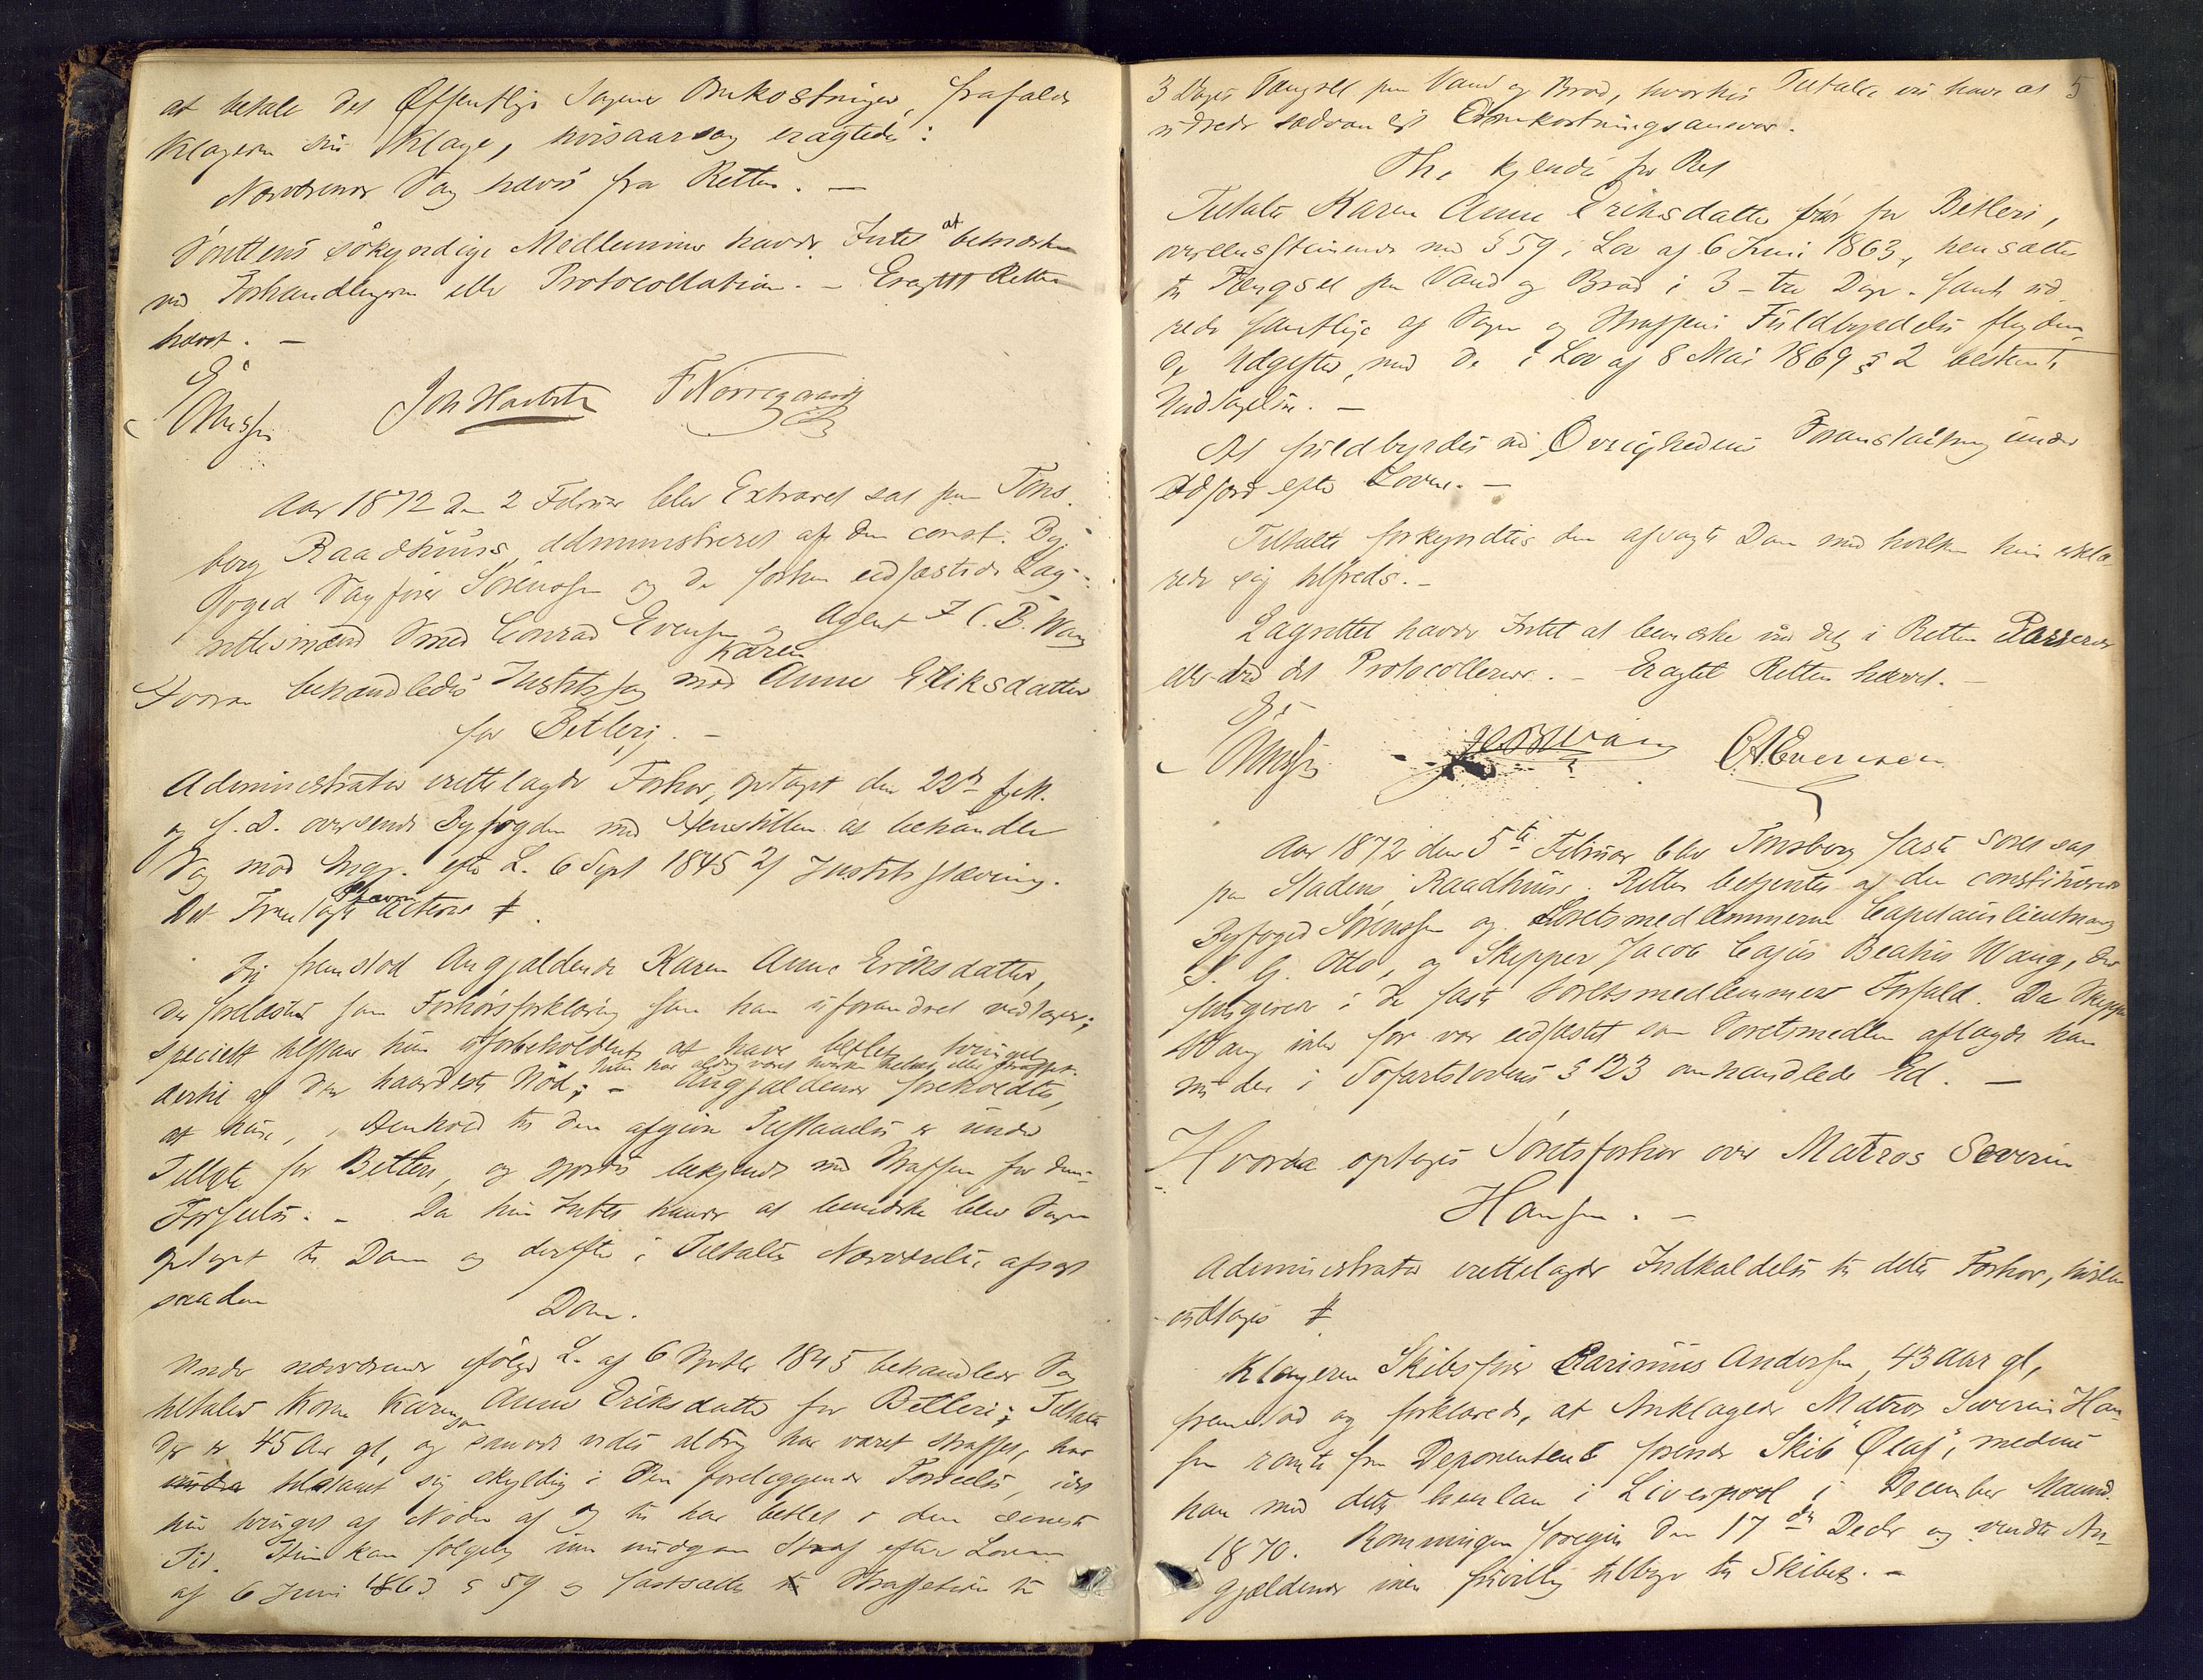 at betale det Offentlige Sagens Omkostninger, frafaldt
Klageren sin Klage, hvisaarsag eragtedes:
Nærværende Sag hæves fra Retten. —
Sørettens søkyndige Medlemmer havde Intet at bemærke
ved Forhandlingerne eller Protocollationen. — Eragtet Retten
hævet. —
Joh Havbst FNørregaard
Aar 1872 den 2 Februar blev Extraret sat paa Tøns-
berg Raadhuus, administreret af den const. By-
foged Sagfører Sørenssen og de forhen eedfæstede Lag-
rettesmænd Smed Conrad Evensen og Agent J C. B. Wang
Hvorda behandledes Justitssag mod Karen Anne Eriksdatter
for Betleri. —
Administrator rettelagde Forhør, optaget den 22de f. M.
og s. D. oversendt Byfogden med Henstillen at behandle
Sag mod Angj. efter L. 6 Sept 1845 2/ Justits stævning.
Det Fremlagte acteres ‡.
Angjældende Karen Anne Eriksdatter,
der forelæstes sin Forhørsforklaring som hun uforandret vedtager;
specielt tilstaar hun uforbeholdent at have betlet tvunget
dertil af den haardeste Nød; hun har aldrig været hverken tiltalt eller straffet. — Angjældende foreholdtes,
at hun, i Henhold til den afgivne Tilstaaelse er under
Tiltale for Betleri, og gjordes bekjendt med Straffen for denne
Forseelse. — Da hun Intet havde at bemærke blev Sagen
optaget til Dom og derefter i Tiltaltes Nærværelse afsagt
saadan
Dom.
Under nærværende ifølge L. af 6 Septbr 1845 behandlede Sag
tiltales Kone Karen Anne Eriksdatter for Betleri; Tiltalte
der er 45 Aar gl, og saavidt vides aldrig har været straffet, har
tilstaaet sig skyldig i den foreliggende Forseelse, idet
hun tvunget af Nøden af og til har betlet i den seneste
Tid. Hun kan følgelig ikke undgaa Straf efter Loven
af 6 Juni 1863 § 59 og fastsættes Straffetiden til
3 Dages Fængsel paa Vand og Brød, hvorhos Tiltalte vil have at 5
udrede sædvanligt Omkostningsansvar.
Thi kjendes for Ret
Tiltalte Karen Anne Eriksdatter bør for Betleri,
overensstemmende med § 59 i Lov af 6 Juni 1863, hensættes
til Fængsel paa Vand og Brød i 3 – tre Dage – samt ud-
rede samtlige af Sagen og Straffens Fuldbyrdelse flyden-
de Udgifter, med de i Lov af 8 Mai 1869 § 2 bestemte
Undtagelser. —
At fuldbyrdes ved Øvrighedens Foranstaltning under
Adfærd efter Loven. —
Tiltalte forkyndtes den afsagte Dom med hvilken hun erklæ-
rede sig tilfreds. —
Lagrettet havde Intet at bemærke ved det i Retten Passerede
eller ved det Protocollerede. — Eragtet Retten hævet. —
JCBWang CAEvensen
Aar 1872 den 5te Februar blev Tønsberg faste Søret sat
paa Stadens Raadhuus. Retten betjentes af den constituerede
Byfoged Sørenssen og Søretsmedlemmerne Capitainlieutnant
S. G. Otto, og Skipper Jacob Cajus Beatus Wang, der
fungerede i de faste Søretsmedlemmers Forfald. Da Skipper
Wang ikke før var eedfæstet som Søretsmedlem aflagde han
nu den i Søfartslovens § 123 omhandlede Ed. —
Hvorda optages Søretsforhør over Matros Severin
Hansen. —
Administrator rettelagde Indkaldelse til dette Forhør, hvilken
vedtages ‡
Klageren Skibsfører Carinius Andersen, 43 Aar gl,
fremstod og forklarede, at Anklagede Matros Severin Han-
sen rømte fra Deponentens førende Skib "Olaf", medens
han med dette henlaa i Liverpool i December Maaned
1870. Rømningen foregik den 17de Decbr og vendte An-
gjældende ikke frivillig tilbage til Skibet. —